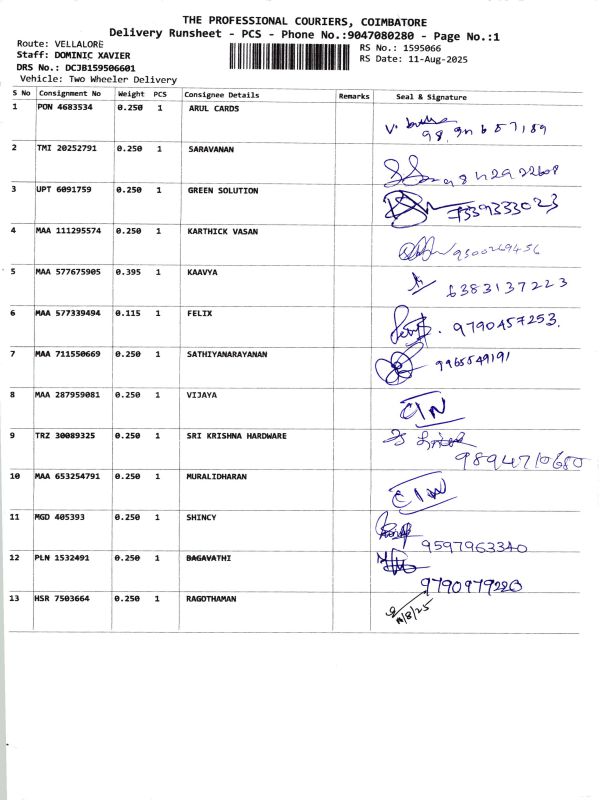 THE PROFESSIONAL COURIERS, COIMBATORE
Delivery Runsheet - PCS - Phone No.:9047080280 - Page No.:1
Route: VELLALORE
Staff: DOMINIC XAVIER
DRS No.: DCJB159506601
Vehicle: Two Wheeler Delivery
RS No.: 1595066
RS Date: 11-Aug-2025
S No Consignment No Weight PCS Consignee Details Remarks Seal & Signature
1 PON 4683534 0.250 1 ARUL CARDS
2 TMI 20252791 0.250 1 SARAVANAN
3 UPT 6091759 0.250 1 GREEN SOLUTION
7339333023
4 MAA 111295574 0.250 1 KARTHICK VASAN
9500269456
5 MAA 577675905 0.395 1 KAAVYA
6383137223
6 MAA 577339494 0.115 1 FELIX
9790457253.
7 MAA 711550669 0.250 1 SATHIYANARAYANAN
9965549191
8 MAA 287959081 0.250 1 VIJAYA
9 TRZ 30089325 0.250 1 SRI KRISHNA HARDWARE
9894710680
10 MAA 653254791 0.250 1 MURALIDHARAN
11 MGD 405393 0.250 1 SHINCY
9597963340
12 PLN 1532491 0.250 1 BAGAVATHI
9790979220
13 HSR 7503664 0.250 1 RAGOTHAMAN